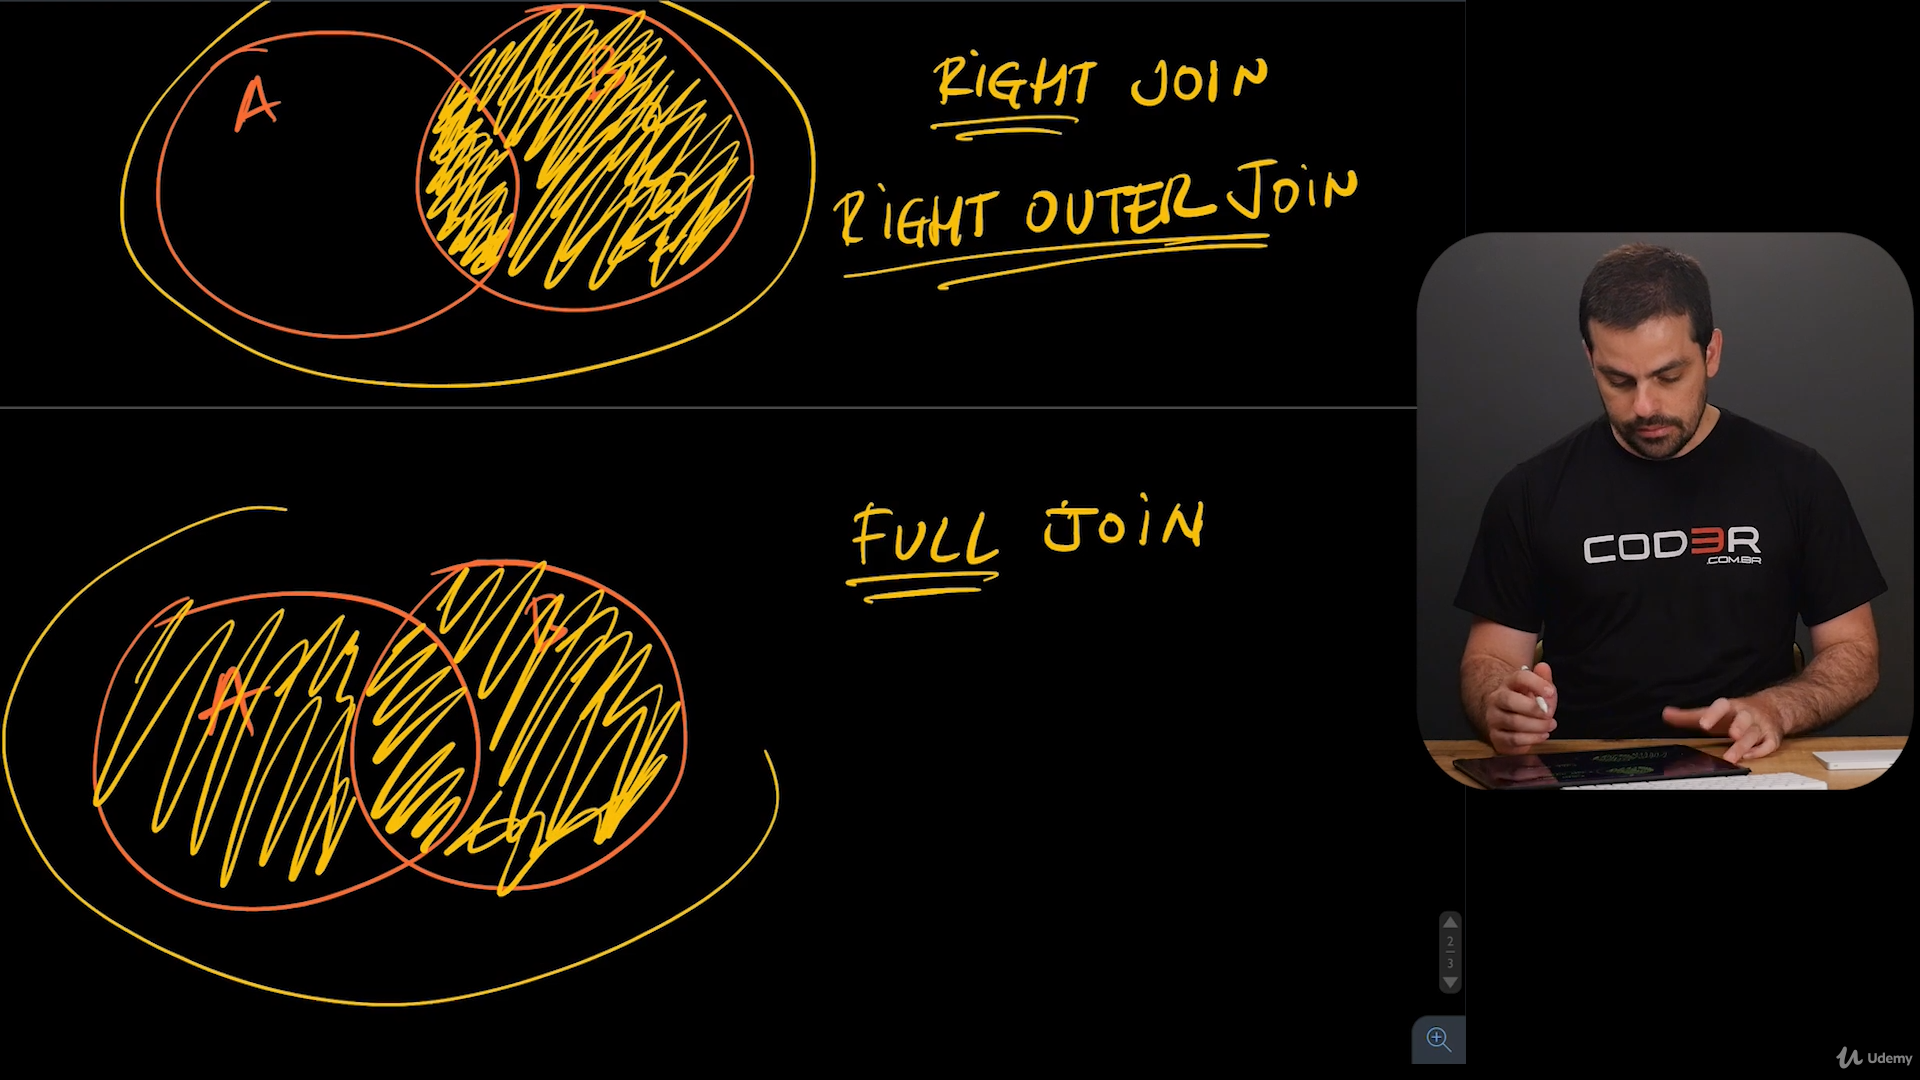 A
B
RiGHT JOIN
RiGHT OUTER JOiN
FULL JOiN
A
B
COD3R
.COM.BR
2
3
Udemy